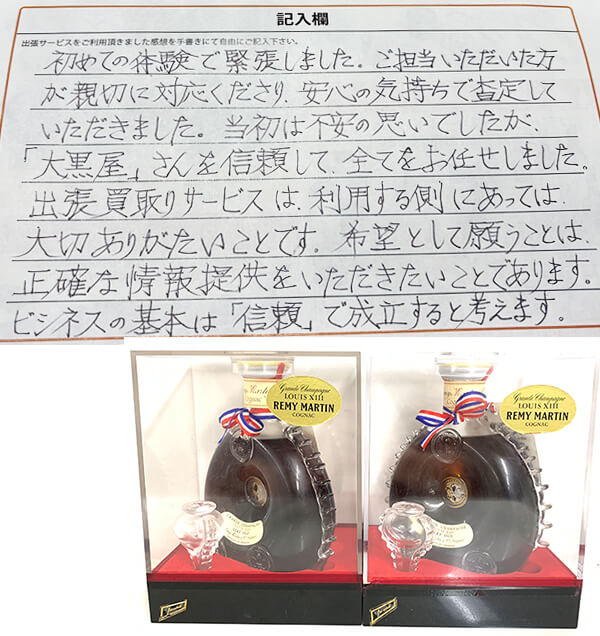 記入欄
出張サービスをご利用頂きました感想を手書きにて自由にご記入下さい。
初めての体験で緊張しました。ご担当いただいた方
が親切に対応くださり、安心の気持ちで査定して
いただきました。当初は不安の思いでしたが、
「大黒屋」さんを信頼して、全てをお任せしました。
出張買取りサービスは、利用する側にあっては、
大切ありがたいことです。希望として願うことは、
正確な情報提供をいただきたいことであります。
ビジネスの基本は「信頼」で成立すると考えます。
Grande Champagne
LOUIS XIII
REMY MARTIN
COGNAC
Grande Champagne
LOUIS XIII
REMY MARTIN
COGNAC